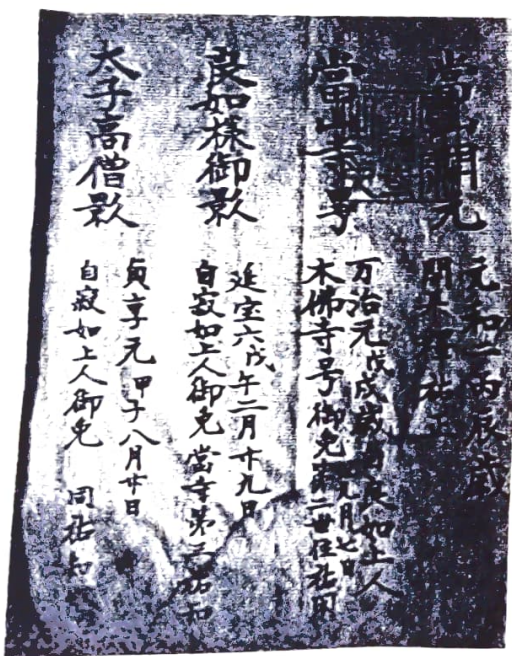 當 開元
元和二丙辰歳
開
當 寺号
万治元戊戌歳 良如上人
木佛寺号御免 第二世住
九月七日
良如様御影
延宝六戊午二月廿九日
自寂如上人御免 當寺第三
太子高僧影
貞享元甲子八月廿日
自寂如上人御免 同祐知